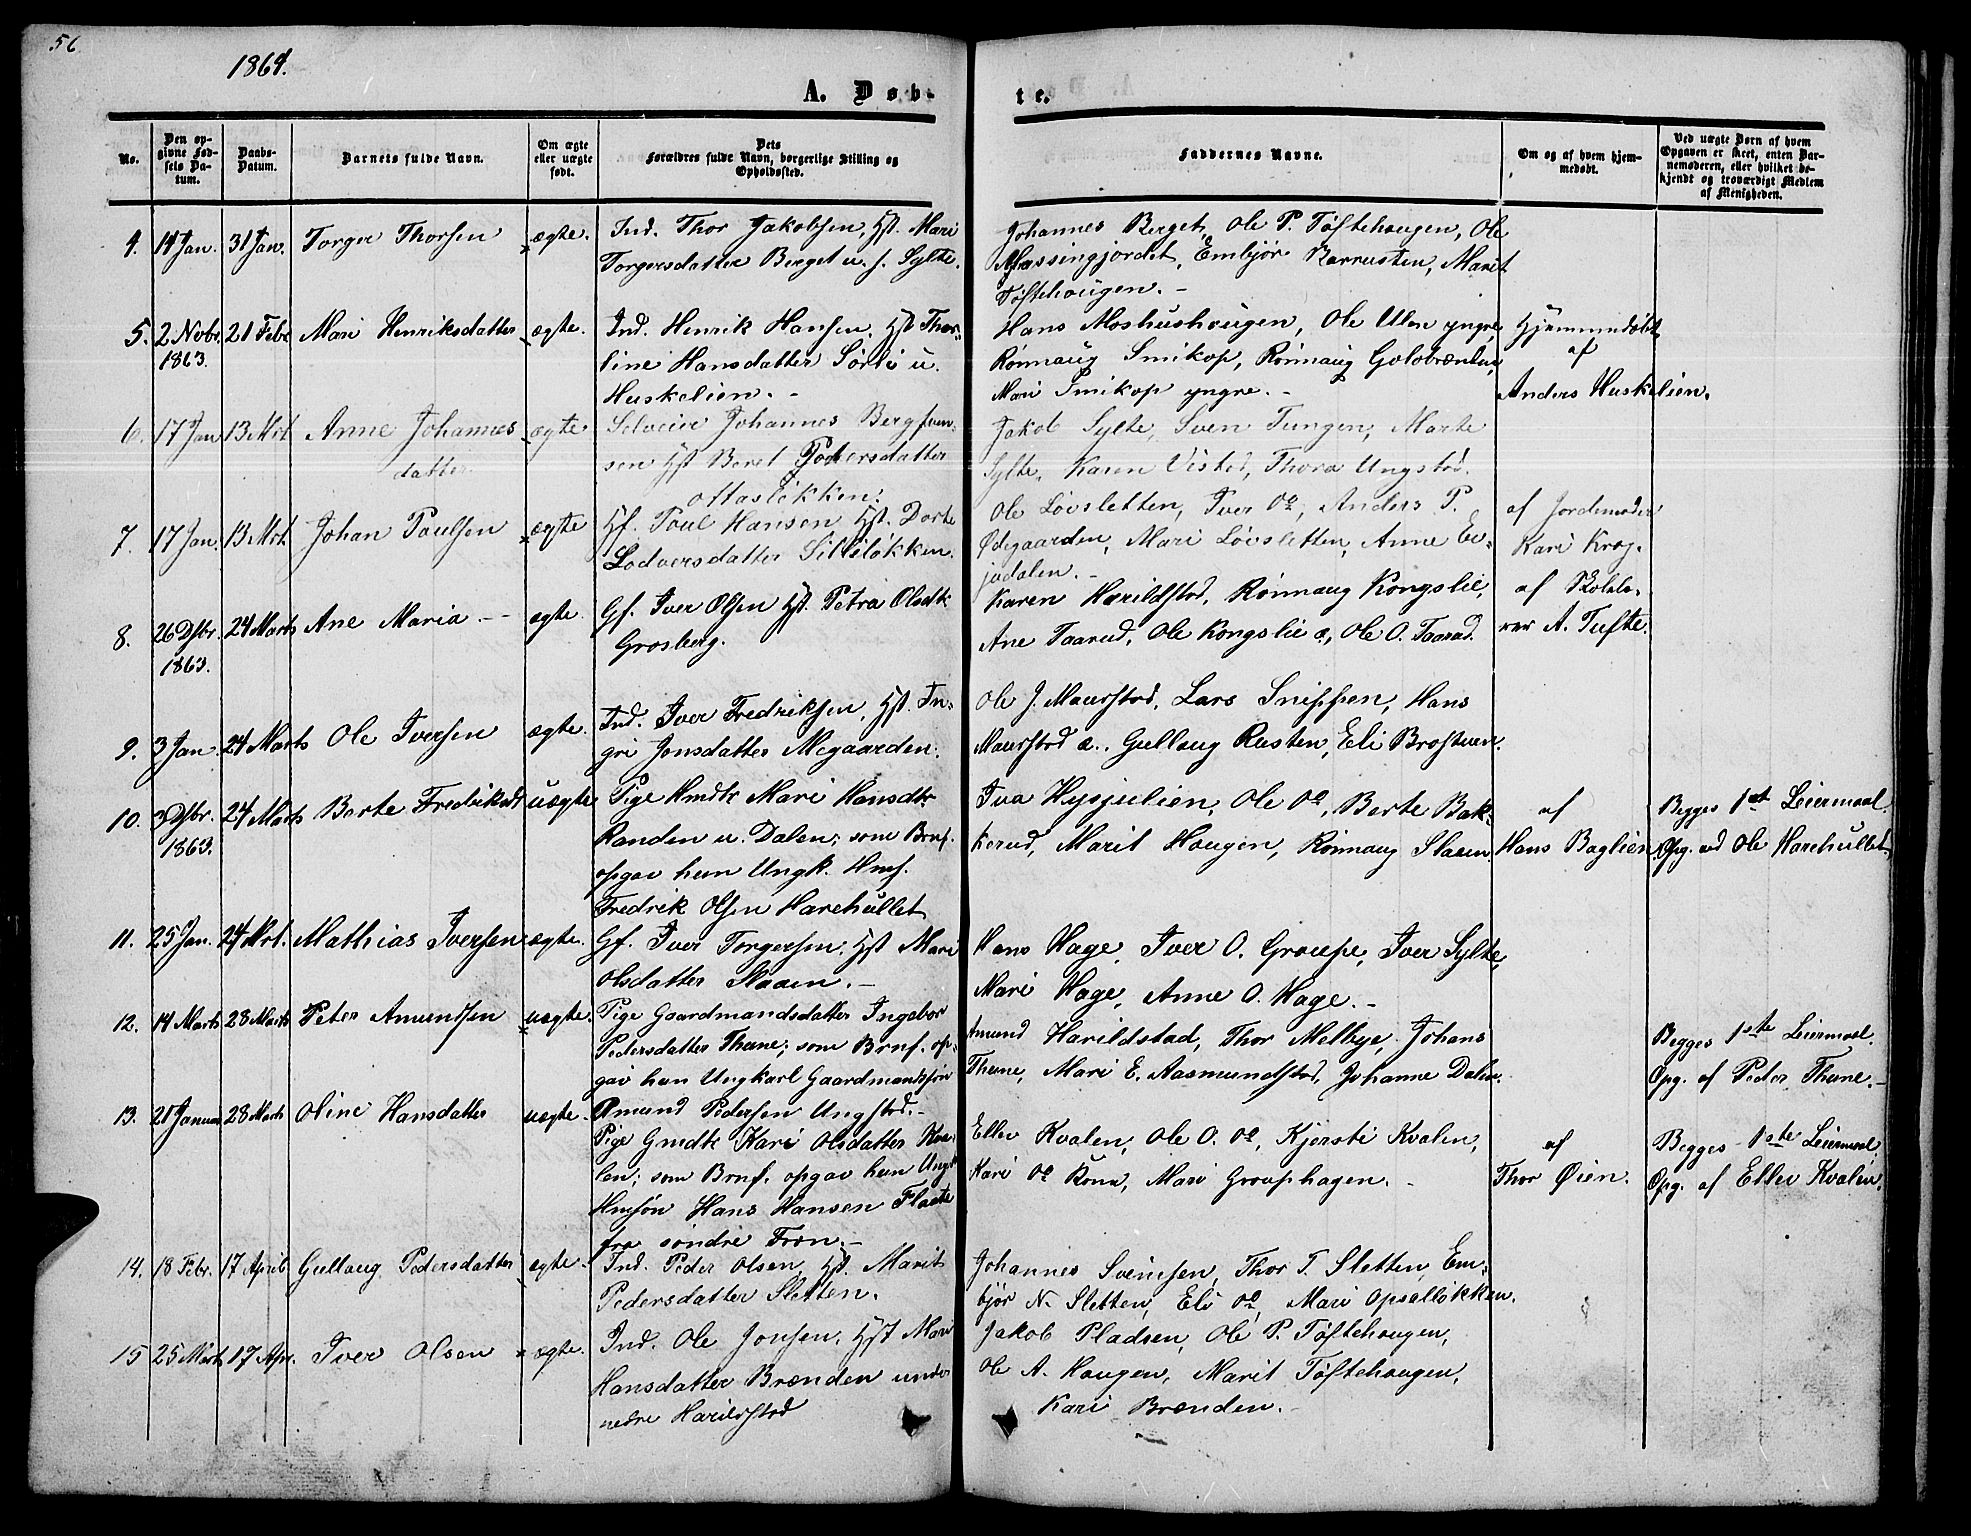 56
1864.
A. Døb-
te.
No.
Den op-
givne Fød-
sels Da-
tum.
Daabs-
Datum.
Barnets fulde Navn.
Om ægte
eller uægte
født.
Dets
Forældres fulde Navn, borgerlige Stilling og
Opholdssted.
Faddernes Navne.
Om og af hvem hjem-
medøbt.
Ved uægte Børn af hvem
Opgaven er skeet, enten Bar-
nemoderen, eller hvilket be-
kjendt og troværdigt Medlem
af Menigheden.
4. 14 Jan. 31 Jan. Torger Thorsen ægte. Ind. Thor Jakobsen, Hst. Mari
Torgersdatter Berget u. f. Sylte.
Johannes Berget, Ole P. Toftehougen, Ole
Massingjordet, Embjør Barrusten, Marit
Toftehougen. -
5. 2 Nvbr. 21 Febr. Mari Henriksdatter ægte. Ind. Henrik Hansen, Hst Thor-
1863. line Hansdatter Sørli u.
Huskelien. -
Hans Moshushougen, Ole Ulen yngre,
Rönnaug Smikop, Rönnaug Golobrænden,
Mari Smikop yngre. -
Hjemmedøbt
af
Anders Huskelien.
6. 17 Jan 13 Mrt. Anne Johannes ægte Selveier Johannes Bergsven-
datter sen Hst Beret Pedersdatter
Ottasløkken.
Jakob Sylte, Sven Tungen, Marte
Sylte, Karen Visted, Thora Ungstad.
7. 17 Jan. 13 Mrt. Johan Paulsen ægte Hf. Poul Hansen Hst. Dorte
Lodversdatter Silleløkken.
Ole Løvsletten, Iver do, Anders P.
Ødegaarden, Mari Løvsletten, Anne Ei-
judalen. -
af Jordemoder
Kari Krog.
8. 26 Dsbr. 24 Marts Ane Maria - ægte Gf. Iver Olsen Hst. Petra Olsdtr
1863. Grosberg.
Karen Harildstad, Rönnaug Kongslie,
Ane Taarud, Ole Kongslie æ, Ole O. Taarud.
af Skolelæ-
rer A. Tufte.
9. 3 Jan. 24 Marts Ole Iversen ægte. Ind. Iver Fredriksen, Hst. In-
gri Jonsdatter Megaarden.
Ole J. Maurstad, Lars Snippen, Hans
Maurstad æ., Gullaug Rusten, Eli Brostuen.
10. 3 Dsbr. 24 Marts Berte Fredriksd uægte Pige Hmdtr Mari Hansdtr
1863. Randen u. Dalen; som Brnf.
opgav hun Ungk. Hms.
Fredrik Olsen Harehullet
Iva Hysjulien, Ole do, Berte Bak-
kerud, Marit Hougen, Rönnaug Slaaen
af
Hans Baglien.
Begges 1st Leiermaal.
Opg. ved Ole Harehullet
11. 25 Jan. 24 Mrt. Mathias Iversen ægte. Gf. Iver Torgersen, Hst Mari
Olsdatter Slaaen. -
Hans Hage, Iver O. Graupe, Iver Sylte,
Mari Hage, Anne O. Hage. -
12. 14 Marts 28 Marts Peter Amundsen uægte. Pige Gaardmandsdatter Ingebor
Pedersdatter Thune; som Brnf. op-
gav hun Ungkarl Gaardmandssøn
Amund Pedersen Ungstad. -
Amund Harildstad, Thor Melbye, Johans
Thune, Mari E. Aasmundstad, Johanne Dalen.
Begges 1ste Leiermaal.
Opg. af Peder Thune. -
13. 21 Januar 28 Marts Oline Hansdatter uægte. Pige Gmdtr Kari Olsdatter Kva-
len; som Brnf. opgav hun Ungk
Hmsøn Hans Hansen Flaate
fra søndre Fron. -
Ellev Kvalen, Ole O. do, Kjersti Kvalen,
Kari do Kona, Mari Grouphagen. -
af
Thor Øien.
Begges 1ste Leiermaal
Opg. af Ellev Kvalen.
14. 18 Febr. 17 April Gullaug Pedersdatter ægte. Ind. Peder Olsen, Hst. Marit
Pedersdatter Sletten.
Johannes Svensen, Thor T. Sletten, Em-
bjør N. Sletten, Eli do, Mari Opsalløkken.
15 25 Marts 17 Apr. Iver Olsen ægte. Ind. Ole Jonsen, Hst Mari
Hansdatter Brænden under
nedre Harildstad
Jakob Pladsen, Ole P. Toftehougen,
Ole A. Hougen, Marit Toftehougen,
Kari Brænden. -